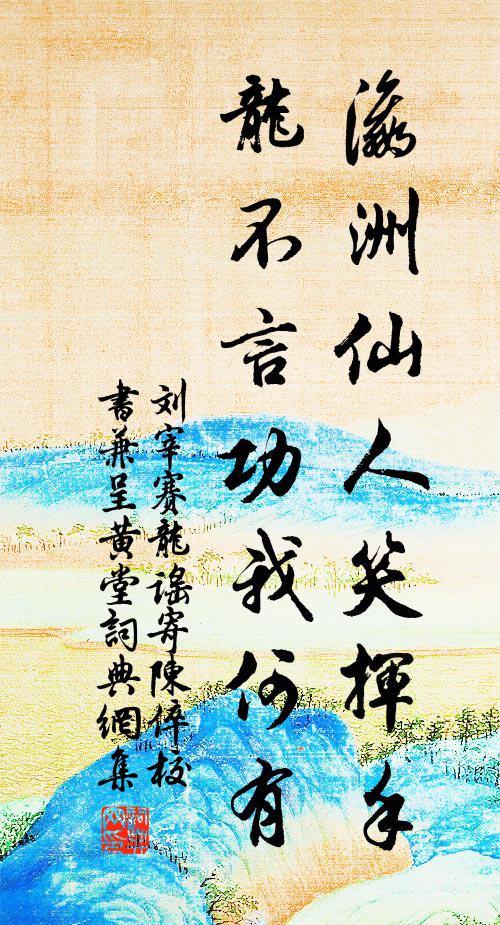 瀛洲仙人笑揮手
龍不言功我何有
刘宰賽龍謡寄陳倅校
書兼呈黄堂詞典網集